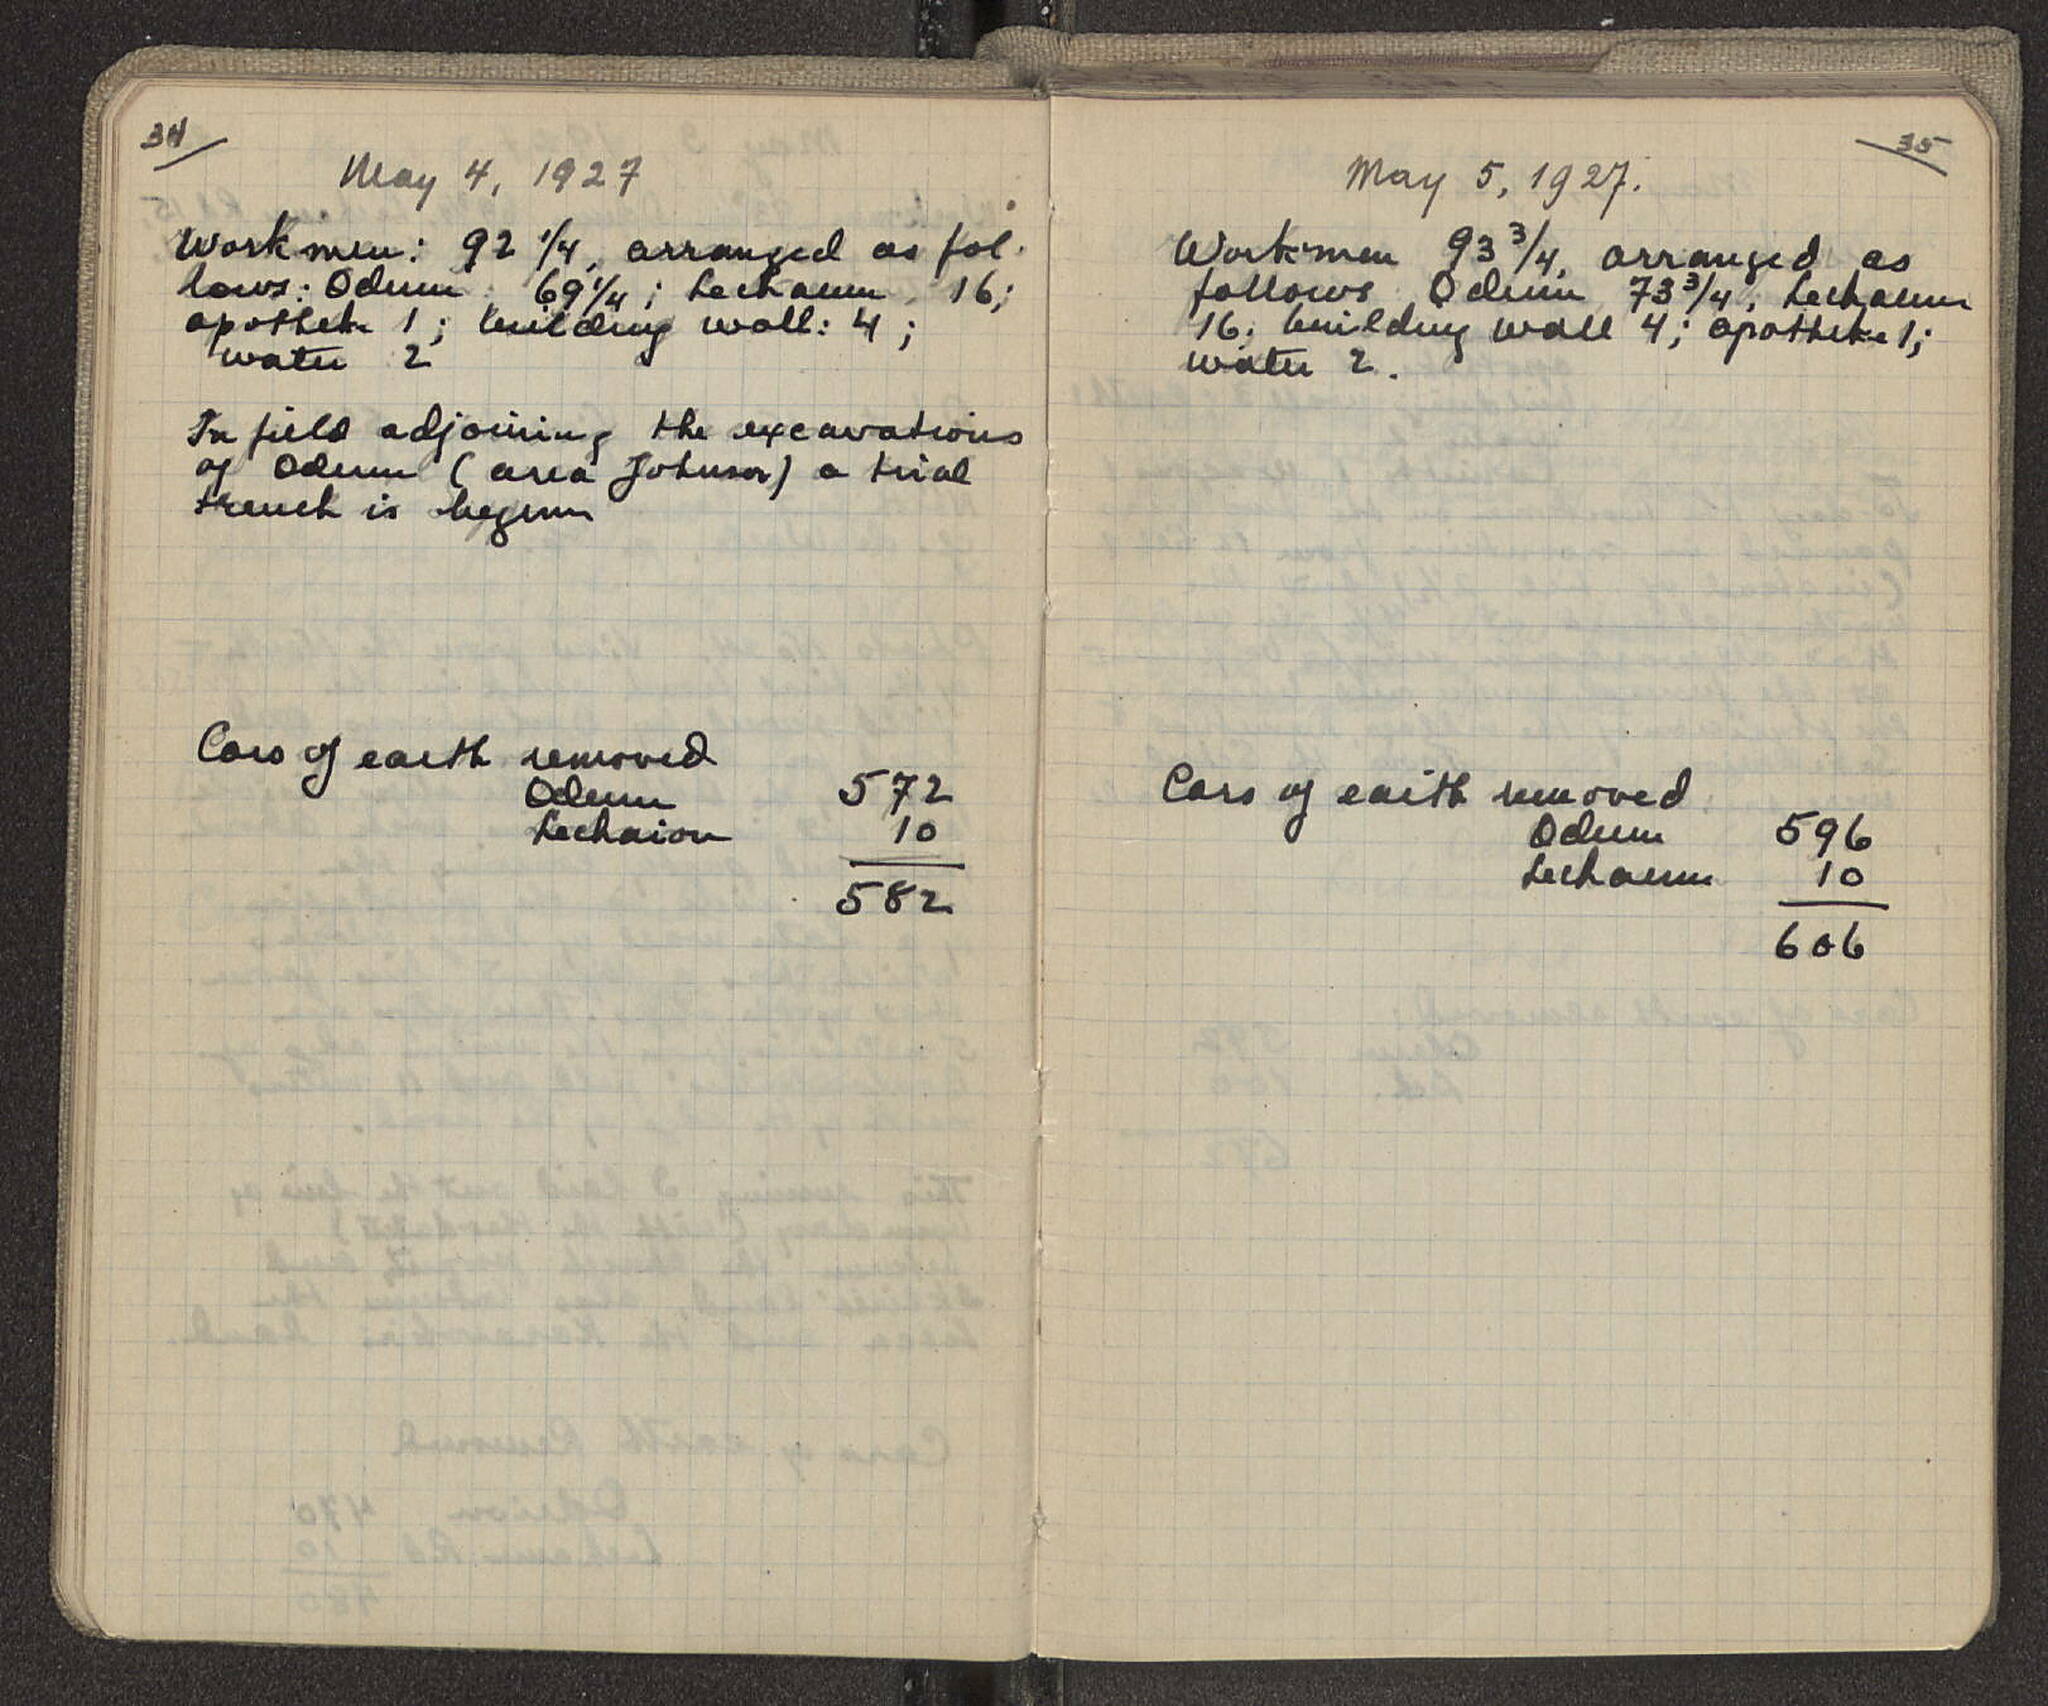 34
May 4, 1927
Workmen: 92 1/4, arranged as fol-
lows: Odeum 69 1/4; Lechaeum 16;
apotheke 1; building wall: 4;
water 2
In field adjoining the excavations
of Odeum (area Johnson) a trial
trench is begun
Cars of earth removed
Odeum 572
Lechaion 10
582
35
May 5, 1927.
Workmen 93 3/4, arranged as
follows Odeum 73 3/4; Lechaeum
16; building wall 4; apotheke 1;
water 2.
Cars of earth removed
Odeum 596
Lechaeum 10
606